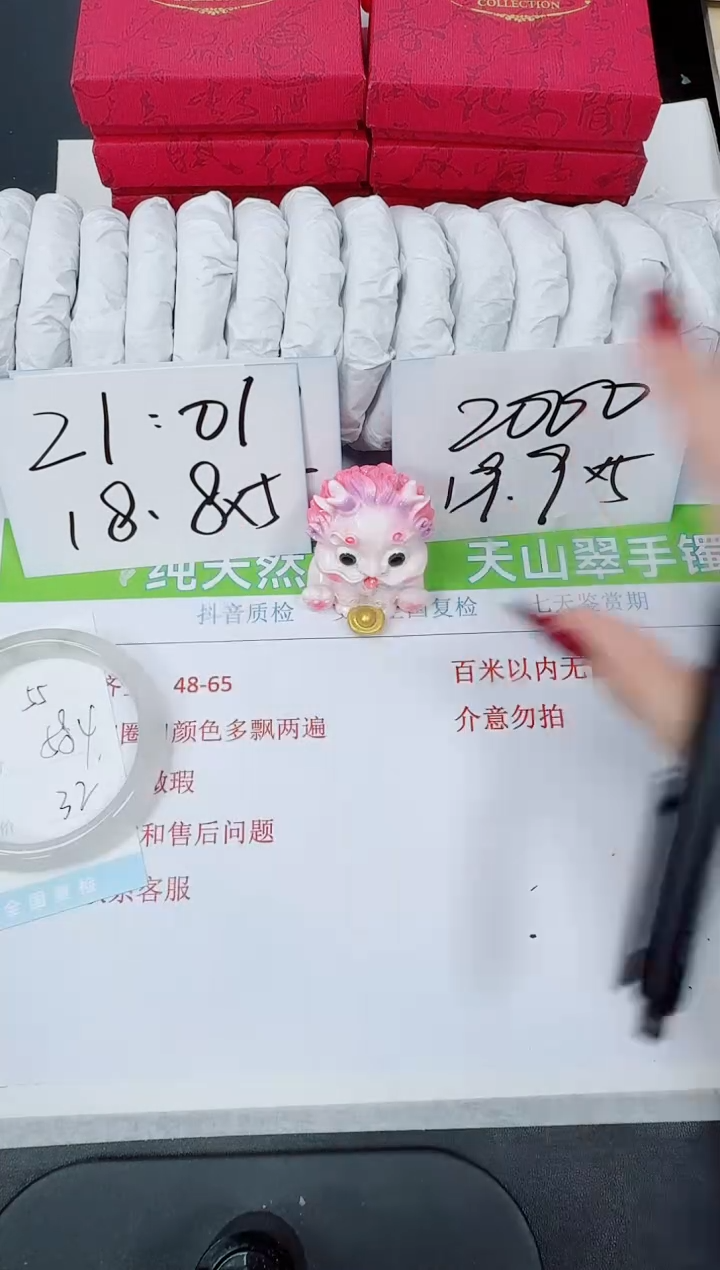 COLLECTION
21:01
18.8x5
2000
19.9x5
纯天然
天山翠手镯
抖音质检
复检
七天鉴赏期
48-65
圈
颜色多飘两遍
百米以内无
介意勿拍
瑕
和售后问题
客服
55
32
全国复检